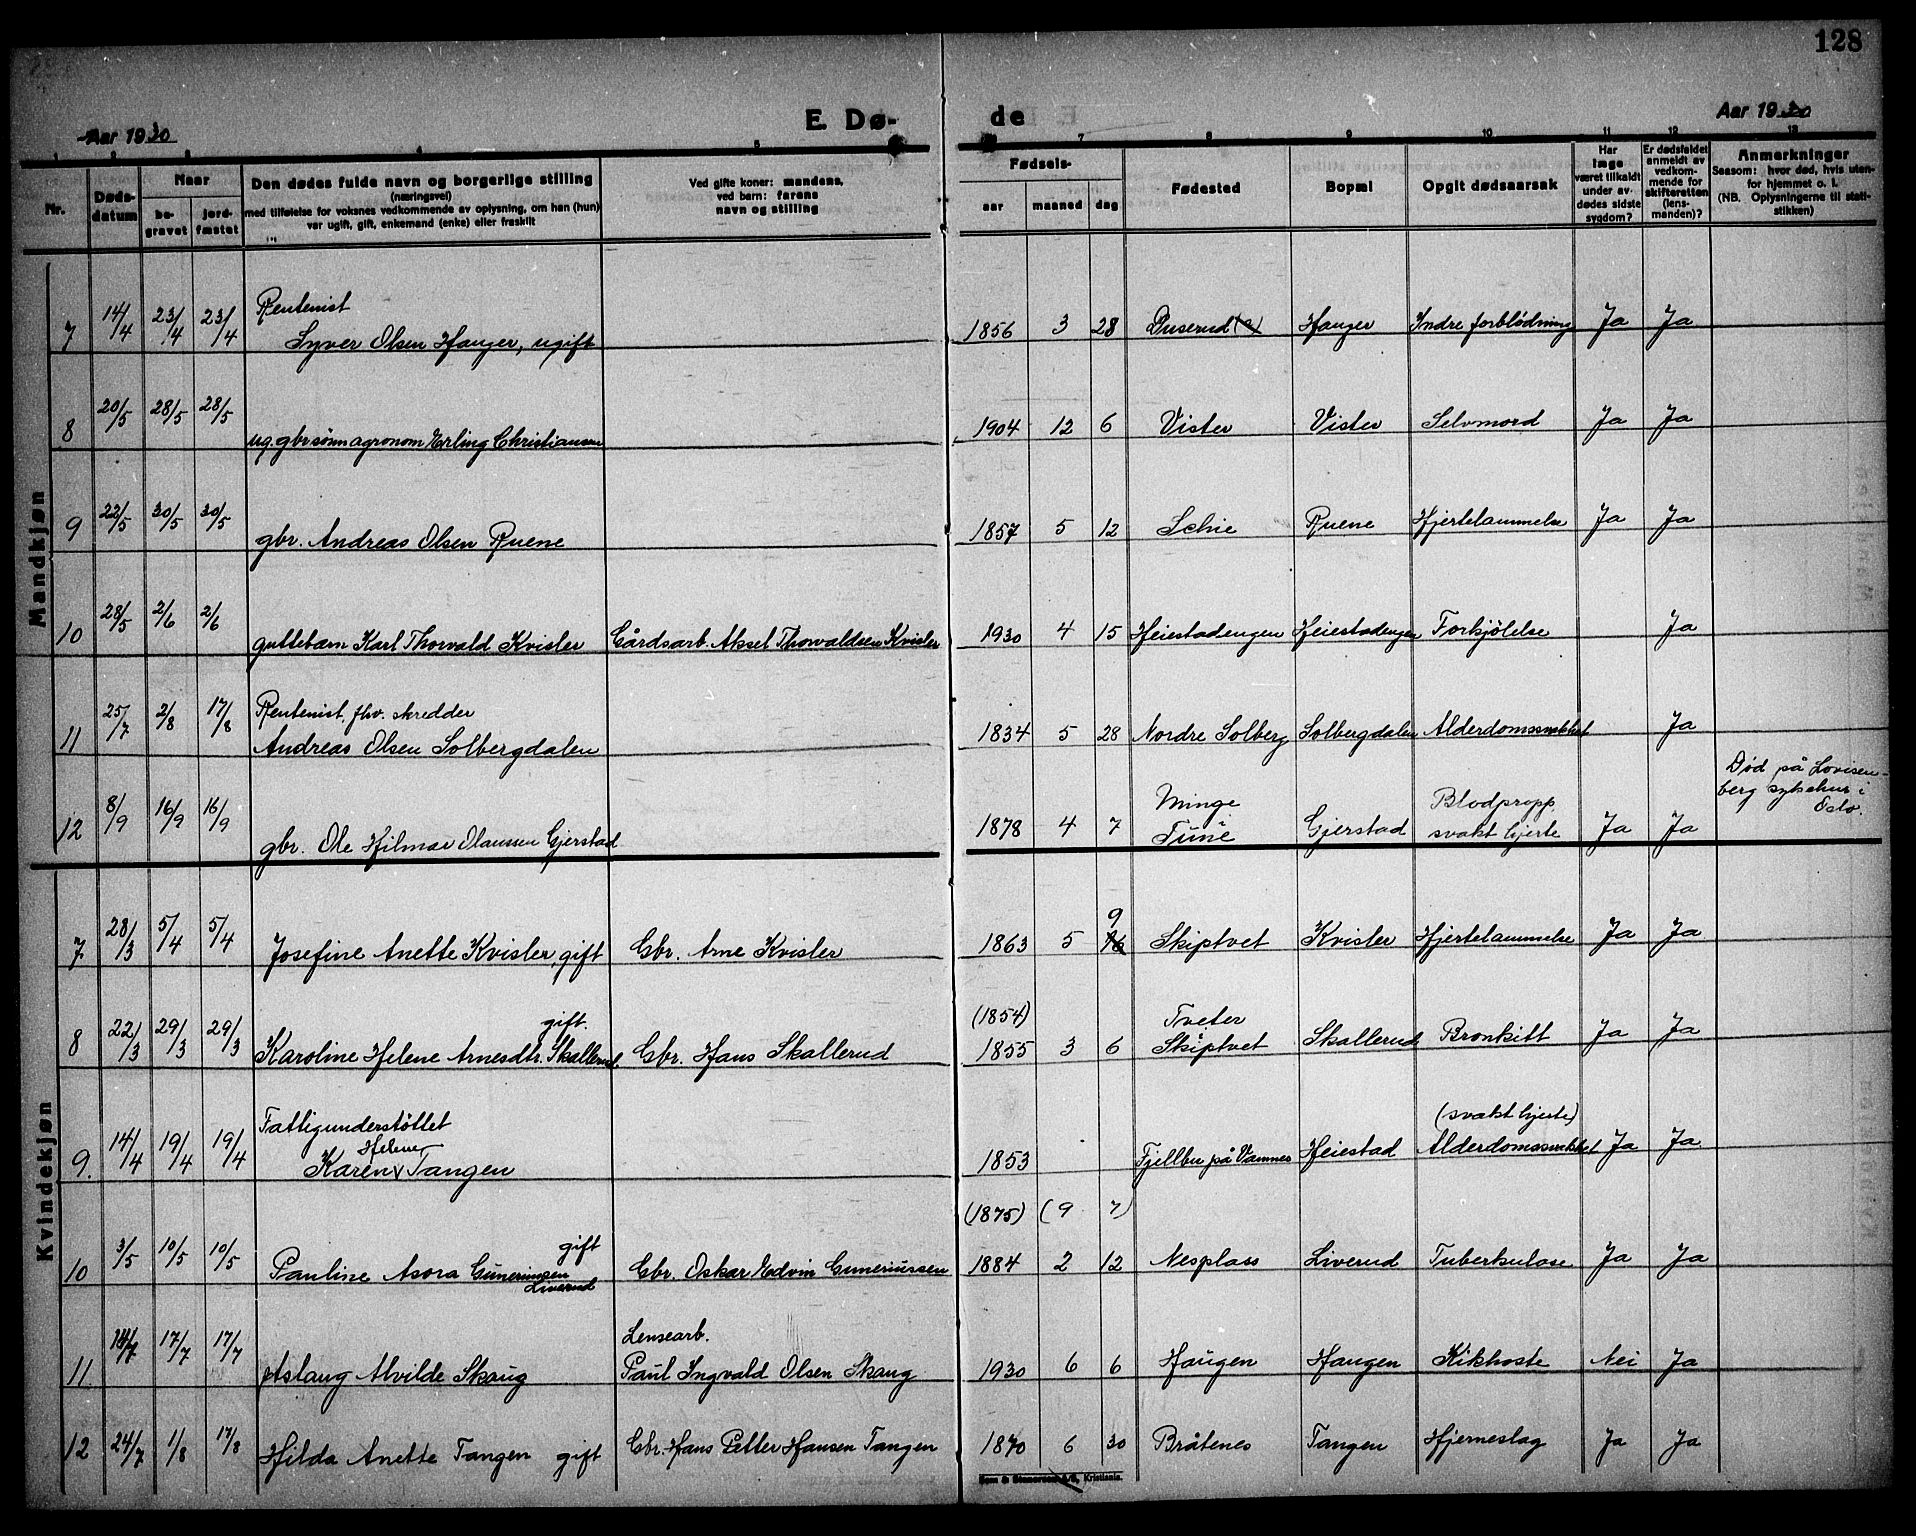 128
Aar 1930
E. Dø-
de
Aar 1930
1 2 3 4 5
7 8 9 10 11 12 13
Nr.
Døds-
datum
Naar
be-
gravet
jord-
fæstet
Den dødes fulde navn og borgerlige stilling
(næringsvei)
med tilføielse for voksnes vedkommende av oplysning, om han (hun)
var ugift, gift, enkemand (enke) eller fraskilt
Ved gifte koner: mandens,
ved barn: farens
navn og stilling
Fødsels-
aar
maaned
dag
Fødested
Bopæl
Opgit dødsaarsak
Har
læge
været tilkaldt
under av-
dødes sidste
sygdom?
Er dødsfaldet
anmeldt av
vedkom-
mende for
skifteretten
(lens-
manden)?
Anmerkninger
Saasom: hvor død, hvis uten-
for hjemmet o. l.
(NB. Oplysningerne til stati-
stikken)
Mandkjøn
Rentenist
7 14/4 23/4 23/4 Syver Olsen Hauger, ugift 1856 3 28 Duserud (?) Hauger Indre forblödning Ja Ja
8 20/5 28/5 28/5 ug. gbr sönn agronom Erling Christiansen 1904 12 6 Vister Vister Selvmord Ja Ja
9 22/5 30/5 30/5 gbr. Andreas Olsen Ruene 1857 5 12 Schie Ruene Hjertelammelse Ja Ja
10 28/5 2/6 2/6 guttebarn Karl Thorvald Kvisler Gårdsarb. Aksel Thorvaldsen Kvisler 1930 4 15 Heiestadengen Heiestadengen Forkjölelse Ja
Rentenist, fhv. skredder
11 25/7 2/8 17/8 Andreas Olsen Solbergdalen 1834 5 28 Nordre Solberg Solbergdalen Alderdomssvakhet Ja
Minge Blodpropp Död på Lovisen-
berg sykehus i
Oslo.
12 8/9 16/9 16/9 gbr. Ole Hilmar Olaussen Gjerstad 1878 4 7 Tune Gjerstad svakt hjerte Ja Ja
Kvindekjøn
9
7 28/3 5/4 5/4 Josefine Anette Kvisler, gift Gbr. Arne Kvisler 1863 5 16 Skiptvet Kvisler Hjertelammelse Ja Ja
gift. (1854) Tveter
8 22/3 29/3 29/3 Karoline Helene Arnesdtr. Skallerud. Gbr. Hans Skallerud 1855 3 6 Skiptvet Skallerud Bronkitt Ja Ja
Fattigunderstöttet (svakt hjerte)
Helene
9. 14/4 19/4 19/4 Karen Tangen 1853 Fjellbu på Vamnes Heiestad Alderdomssvakhet Ja Ja
gift (1875) (9 7)
10 3/5 10/5 10/5 Pauline Asora Guneriussen Gbr. Oskar Edvin Guneriussen 1884 2 12 Nesplass Liverud Tuberkulose Ja Ja
Liverud
Lensearb.
11 14/7 17/7 17/7 Aslaug Alvilde Skaug Paul Ingvald Olsen Skaug 1930 6 6 Haugen Haugen Kikhoste Nei Ja
12 24/7 1/8 17/8 Hilda Anette Tangen gift Gbr. Hans Petter Hansen Tangen 1870 6 30 Bråtenes Tangen Hjerneslag Ja Ja
Kristiania.